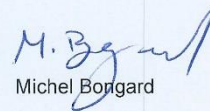 M. Bongard
Michel Bongard